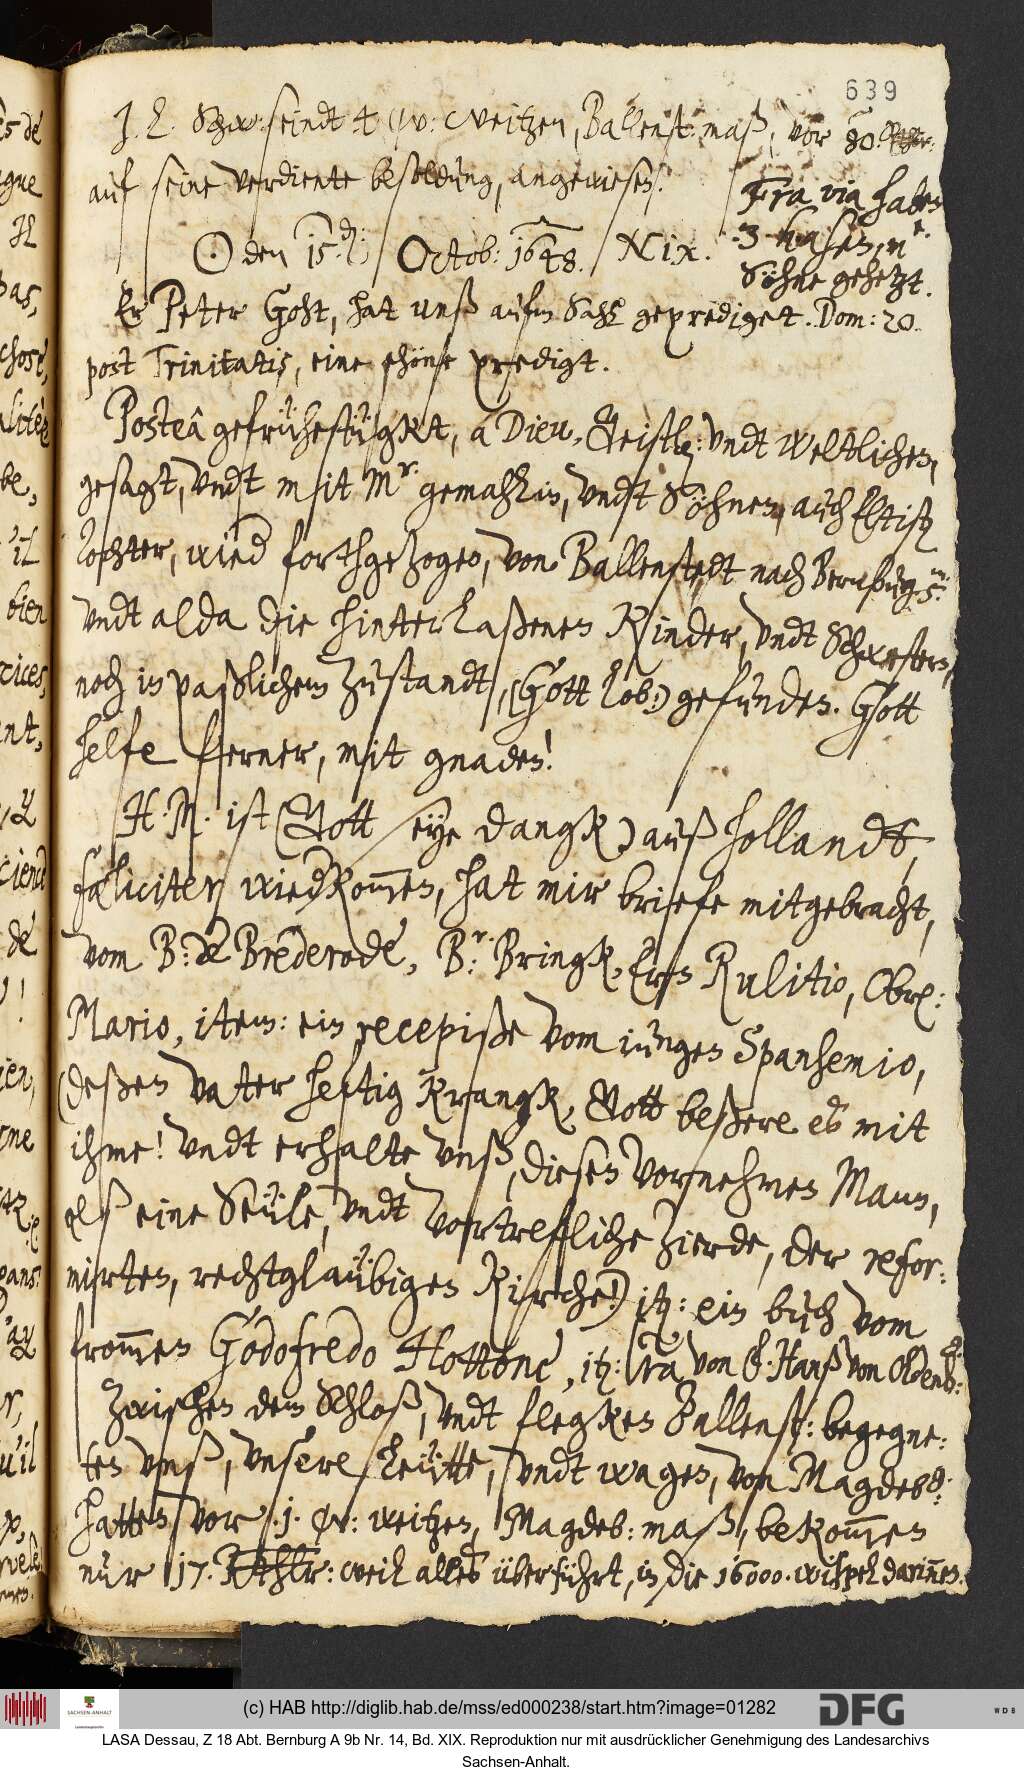 639
J. L. Schw: seindt 4 W: Weitzen, Ballenst: maß, vor 80
auf seine verdiente besoldung, angewiesen.
☉ den 15.den: Octob: 1648. / Nix.
Fra via haben
3 hasen, m.e
Söhne gehetzt.
Er Peter Goht, hat unß aufm Sahl geprediget. Dom: 20.
post Trinitatis, eine schöne predigt.
Posteâ gefrühestügkt, a Dieu, Geistl: undt Weltlichen,
gesagt, undt mit Mr. gemahlin, undt Söhnen, auch Eltist
Tochter, wied forthgezogen, von Ballenstedt nach Bernburg 5.m:
undt alda die hinterlaßenen Kinder, undt Schwestern,
noch in paßlichem zustandt, (Gott lob:) gefunden. Gott
helfe ferner, mit gnaden!
H. M. ist (Gott seye dangk) auß hollandt,
fæliciter wiedkom̅en, hat mir briefe mitgebracht,
vom B: de Brederode, B:r. Bringk, Ern Rulitio, Obrl:
Mario, item: ein recepiße vom iungen Spanhemio,
(deßen vater heftig krangk, Gott beßere es mit
ihme! undt erhalte unß, diesen vornehmen Mann,
alß eine Seüle, undt vortrefliche zierde, der refor:
mirten, rechtglaübigen Kirche!) it: ein buch vom
from̅en Godofredo Hottonc, it: lra von H. Hanß von Oldenb:
Zwischen dem Schloß, undt flegken Ballenst: begegne:
ten unß, unsere leütte, undt wagen, von Magdeb:
hatten vor .1. W: weitzen, Magdeb: maß, bekom̅en
nur 17. Rethlr: weil alles überführt, in die 16000. wispel darin̅en.
(c) HAB http://diglib.hab.de/mss/ed000238/start.htm?image=01282
SACHSEN-ANHALT
DFG
WDB
LASA Dessau, Z 18 Abt. Bernburg A 9b Nr. 14, Bd. XIX. Reproduktion nur mit ausdrücklicher Genehmigung des Landesarchivs
Sachsen-Anhalt.